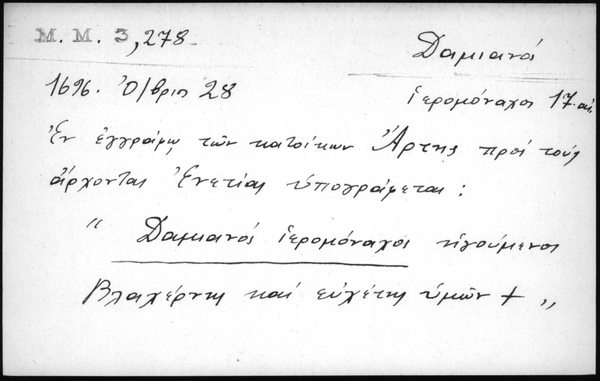 Μ. Μ. 3, 278
Δαμιανός
1696. Ὀ/βριος 28
ἱερομόναχος 17. αἰ.
Ἐν ἐγγράφῳ τῶν κατοίκων Ἄρτης πρός τούς
ἄρχοντας Ἑνετίας ὑπογράφεται :
" Δαμιανός ἱερομόναχος ἡγούμενος
Βλαχέρνης καί εὐχέτης ὑμῶν + "